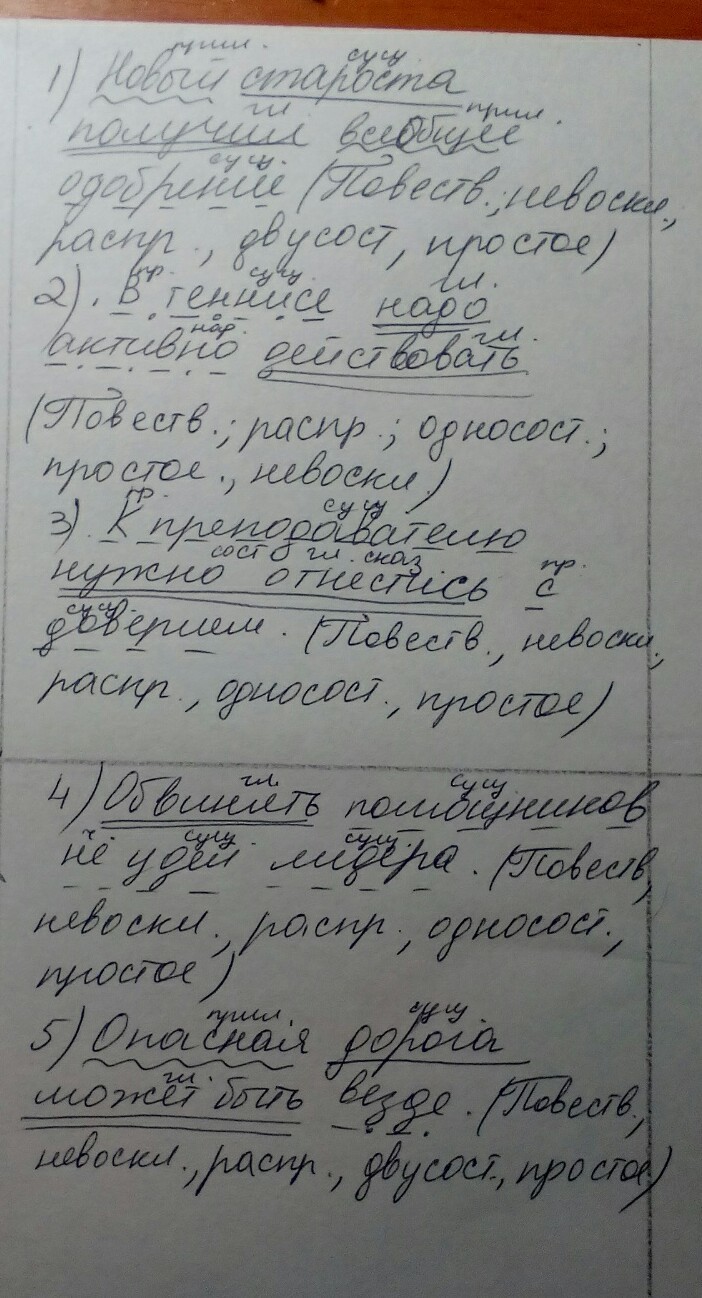 прил. сущ.
1) Новый староста
гл. прил.
получил всеобщее
сущ.
одобрение (Повеств.; невоскл.,
распр., двусост, простое)
пр. сущ. гл.
2). В теннисе надо
нар. гл.
активно действовать
(Повеств.; распр.; односост.;
простое., невоскл)
пр. сущ
3). К преподавателю
сост гл. сказ пр.
нужно отнестись с
сущ.
доверием. (Повеств., невоскл.,
распр., односост., простое)
гл. сущ
4) Обвинять помощников
ч. сущ. сущ.
не удел лидера. (Повеств,
невоскл., распр., односост.,
простое)
прил сущ
5) Опасная дорога
гл.
может быть везде. (Повеств.,
невоскл., распр., двусост., простое)